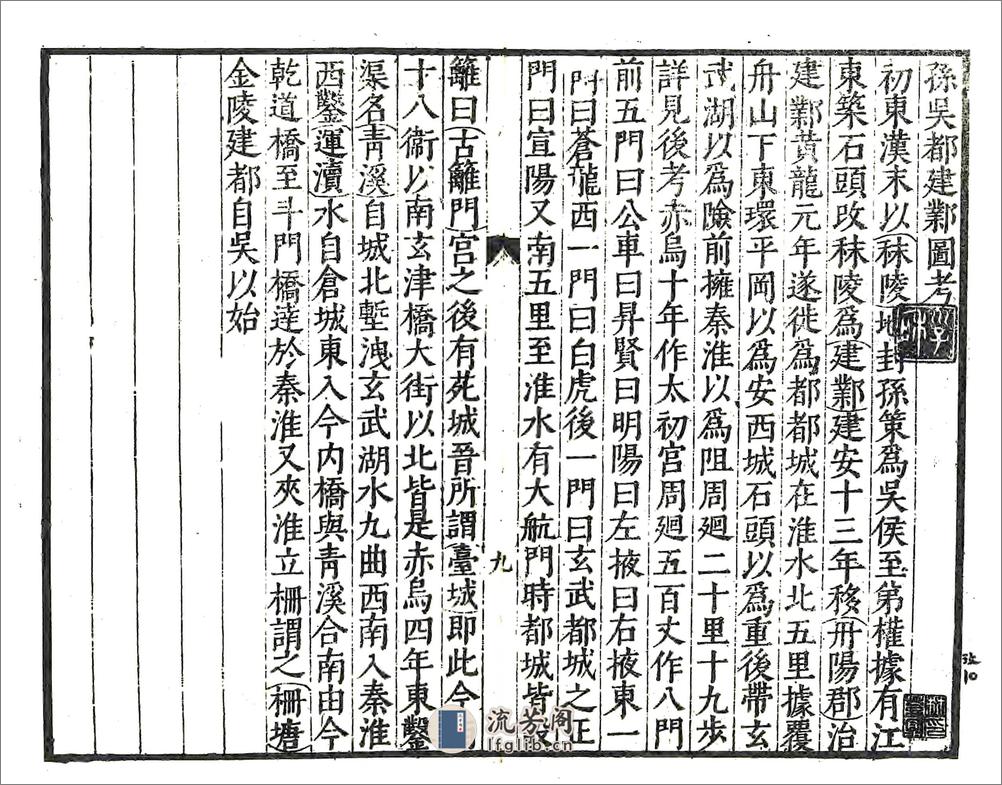 孫吳都建鄴圖考
初東漢末以秣陵地封孫策爲吳侯至第權據有江
東築石頭改秣陵爲建鄴建安十三年移丹陽郡治
建鄴黃龍元年遂徙爲都都城在淮水北五里據覆
舟山下東環平岡以爲安西城石頭以爲重後帶玄
武湖以爲險前擁秦淮以爲阻周廻二十里十九步
詳見後考赤烏十年作太初宮周廻五百丈作八門
前五門曰公車曰昇賢曰明陽曰左掖曰右掖東一
門曰蒼龍西一門曰白虎後一門曰玄武都城之正
門曰宣陽又南五里至淮水有大航門時都城皆設
九
籬曰古籬門宮之後有苑城晉所謂臺城即此今
十八衛以南玄津橋大街以北皆是赤烏四年東鑿
渠名青溪自城北塹洩玄武湖水九曲西南入秦淮
西鑿運瀆水自倉城東入今內橋與青溪合南由今
乾道橋至斗門橋達於秦淮又夾淮立柵謂之柵塘
金陵建都自吳以始
流芳阁
lfglib.cn